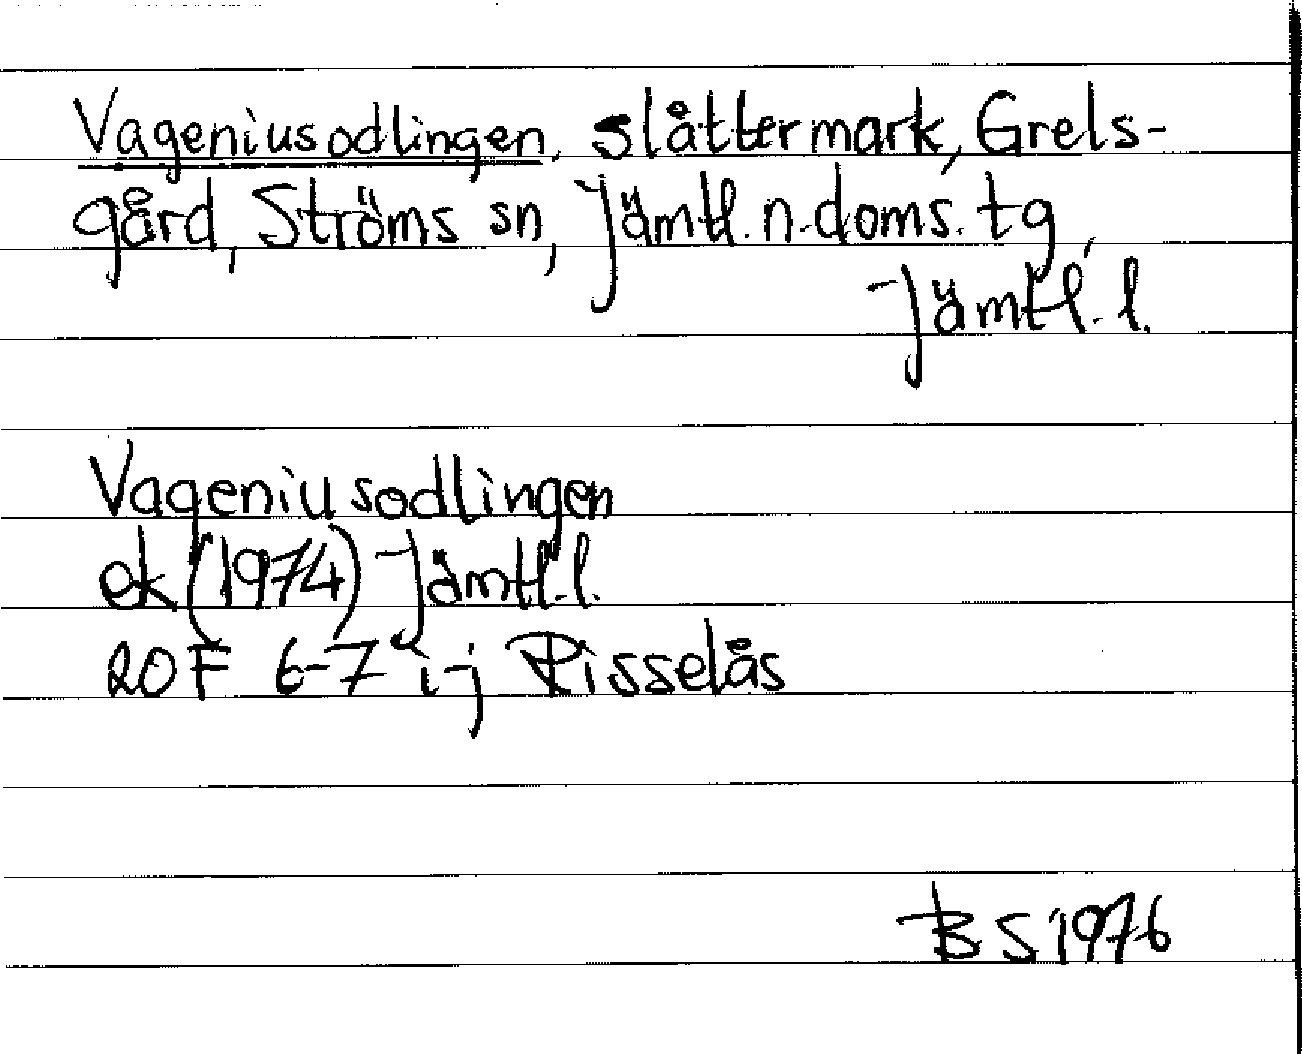 Vageniusodlingen, slåttermark, Grels-
gård, Ströms sn, Jämtl. n. doms. tg,
Jämtl. l.
Vageniusodlingen
ek (1974) Jämtl. l.
20F 6-7 i-j Risselås
BS 1976